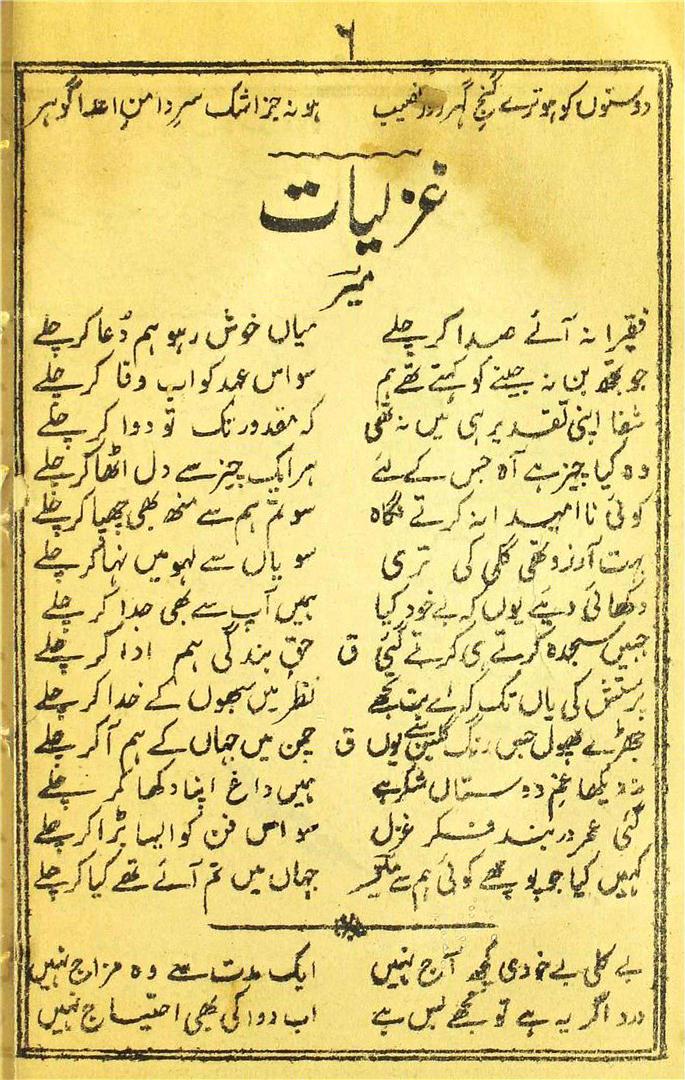 ۶
دوستوں کو ہو ترے گنج گہر نصیب ہو نہ جز اشک سرِ دامنِ اعدا گوہر
غزلیات
میرؔ
فقیرانہ آئے صدا کر چلے میاں خوش رہو ہم دُعا کر چلے
جو تجھ بن نہ جینے کو کہتے تھے ہم سو اس عہد کو اب وفا کر چلے
شفا اپنی تقدیر ہی میں نہ تھی کہ مقدور تک تو دوا کر چلے
وہ کیا چیز ہے آہ جس کے لئے ہر ایک چیز سے دل اٹھا کر چلے
کوئی نا امیدانہ کرتے نگاہ سو تم ہم سے منھ بھی چھپا کر چلے
بہت آرزو تھی گلی کی تری سو یاں سے لہو میں نہا کر چلے
دکھائی دیئے یوں کہ بے خود کیا ہمیں آپ سے بھی جدا کر چلے
جبیں سجدہ کرتے ہی کرتے گئی ق حقِ بندگی ہم ادا کر چلے
پرستش کی یاں تک کہ اے بت تجھے نظر میں سبھوں کے خدا کر چلے
جھڑے پھول جس رنگ گلبن سے یوں ق چمن میں جہاں کے ہم آ کر چلے
نہ دیکھا غمِ دوستاں شکر ہے ہمیں داغ اپنا دکھا کر چلے
گئی عمر در بند فکر غزل سو اس فن کو ایسا بڑا کر چلے
کہیں کیا جو پوچھے کوئی ہم سے میرؔ جہاں میں تم آئے تھے کیا کر چلے
بے کلی بے خودی کچھ آج نہیں ایک مدت سے وہ مزاج نہیں
درد اگر یہ ہے تو مجھے بس ہے اب دوا کی بھی احتیاج نہیں